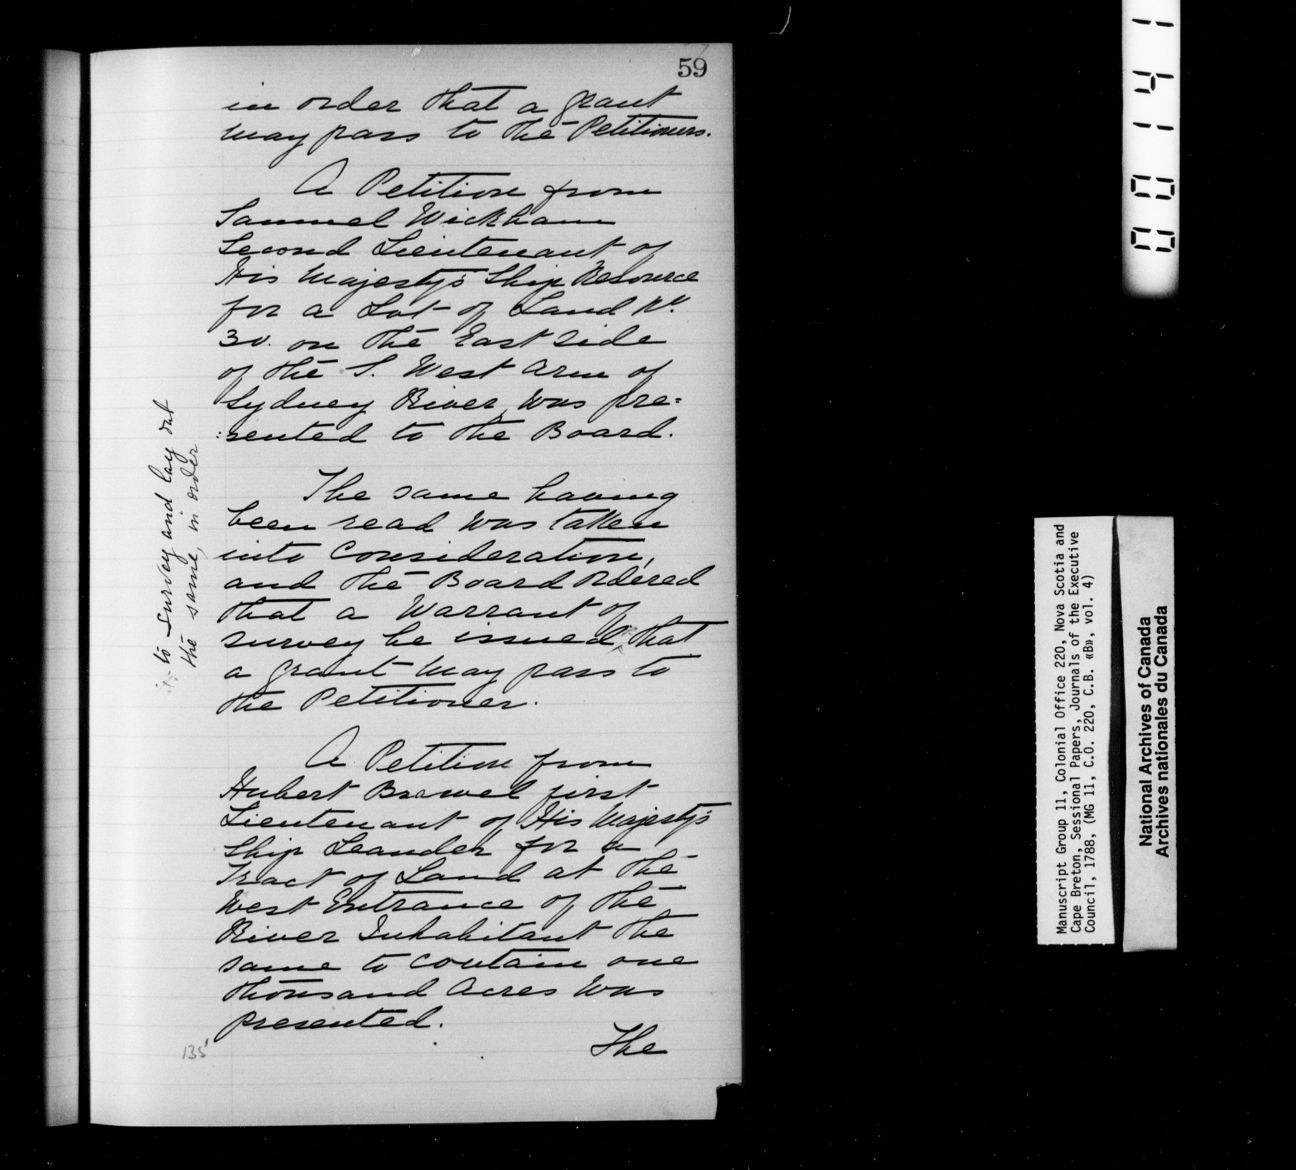 59
in order that a grant
may pass to the Petitioners.
A Petition from
Samuel Wickham
Second Lieutenant of
His Majesty's Ship Resource
for a Lot of Land No.
30. on the East side
of the S. West Arm of
Sydney River, was pre=
:sented to the Board.
The same having
been read was taken
into Consideration,
and the Board ordered
that a Warrant of
survey be issued that
a grant may pass to
the Petitioner.
to survey and lay out
the same, in order
A Petition from
Hubert Brawel first
Lieutenant of His Majesty's
Ship Leander for a
Tract of Land at the
West Entrance of the
River Inhabitant the
same to contain one
thousand Acres was
presented.
The
135
00141
Manuscript Group 11, Colonial Office 220, Nova Scotia and
Cape Breton, Sessional Papers, Journals of the Executive
Council, 1788, (MG 11, C.O. 220, C.B. «B», vol. 4)
National Archives of Canada
Archives nationales du Canada